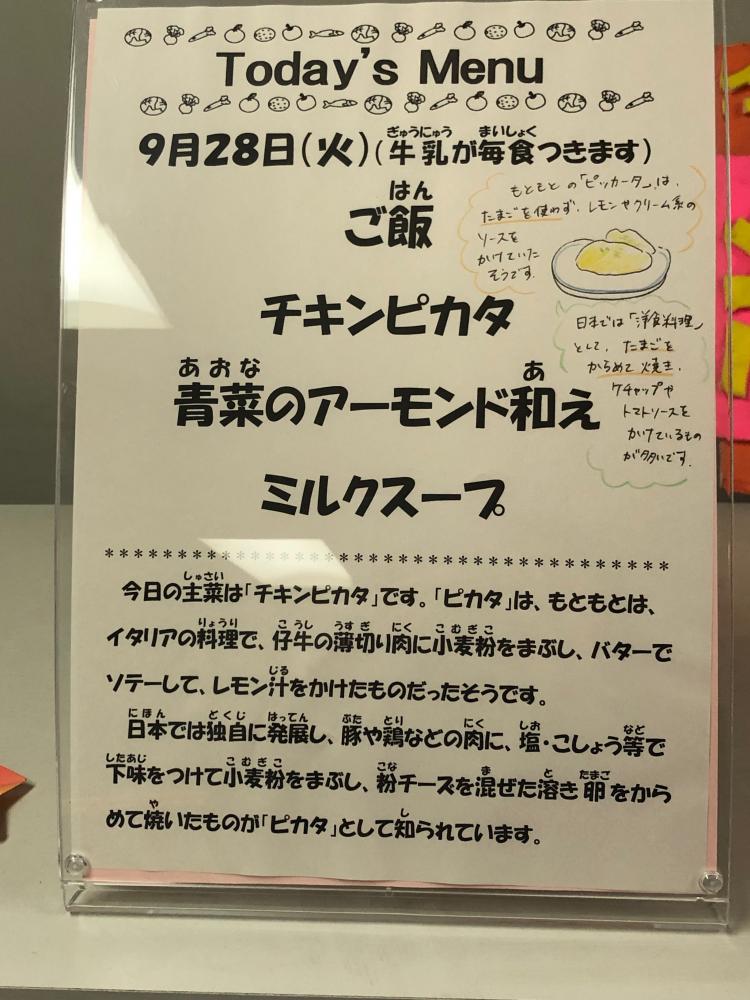 Today's Menu
9月28日(火)(牛乳が毎食つきます)
ご飯
チキンピカタ
青菜のアーモンド和え
ミルクスープ
もともとの「ピッカータ」は、
たまごを使わず、レモンやクリーム系の
ソースを
かけていた
そうです。
日本では「洋食料理」
として、たまごを
からめて焼き、
ケチャップや
トマトソースを
かけているもの
が多いです。
**************************************
今日の主菜は「チキンピカタ」です。「ピカタ」は、もともとは、
イタリアの料理で、仔牛の薄切り肉に小麦粉をまぶし、バターで
ソテーして、レモン汁をかけたものだったそうです。
日本では独自に発展し、豚や鶏などの肉に、塩・こしょう等で
下味をつけて小麦粉をまぶし、粉チーズを混ぜた溶き卵をから
めて焼いたものが「ピカタ」として知られています。